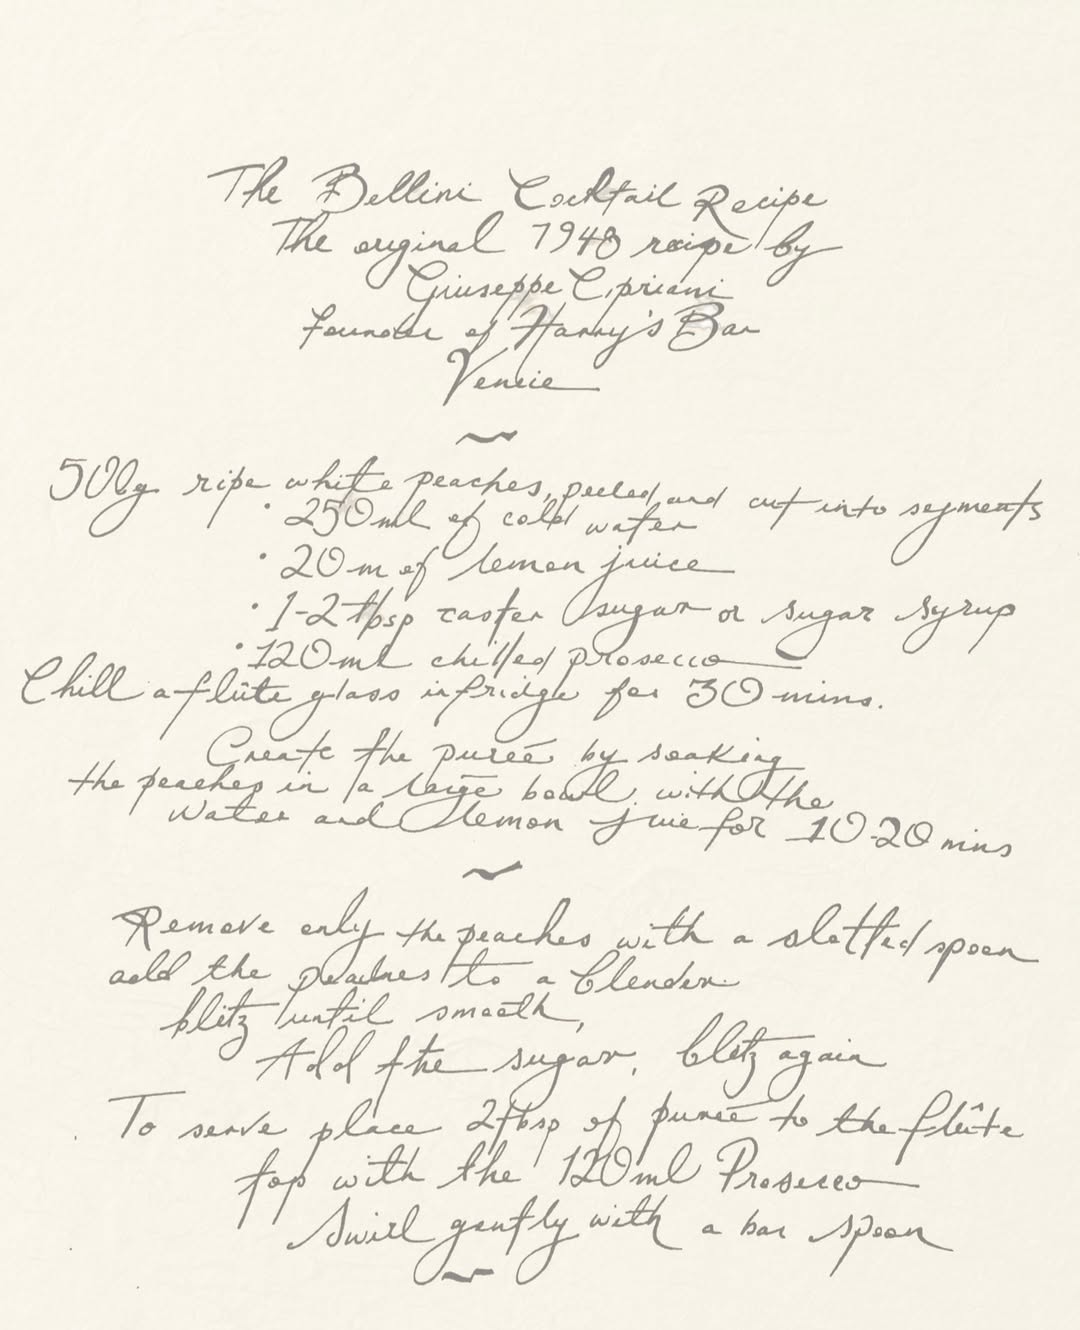 The Bellini Cocktail Recipe
The original 1948 recipe by
Giuseppe Cipriani
founder of Harry's Bar
Venice
~
500g ripe white peaches, peeled and cut into segments
• 250ml of cold water
• 20m of lemon juice
• 1-2 tbsp caster sugar or sugar syrup
• 120ml chilled prosecco
Chill a flûte glass in fridge for 30 mins.
Create the pureé by soaking
the peaches in a large bowl with the
water and lemon juie for 10-20 mins
~
Remove only the peaches with a slotted spoon
add the peaches to a blender.
blitz until smooth,
Add the sugar, blitz again
To serve place 2tbsp of pureé to the flûte
top with the 120ml Prosecco
Swirl gently with a bar spoon
~